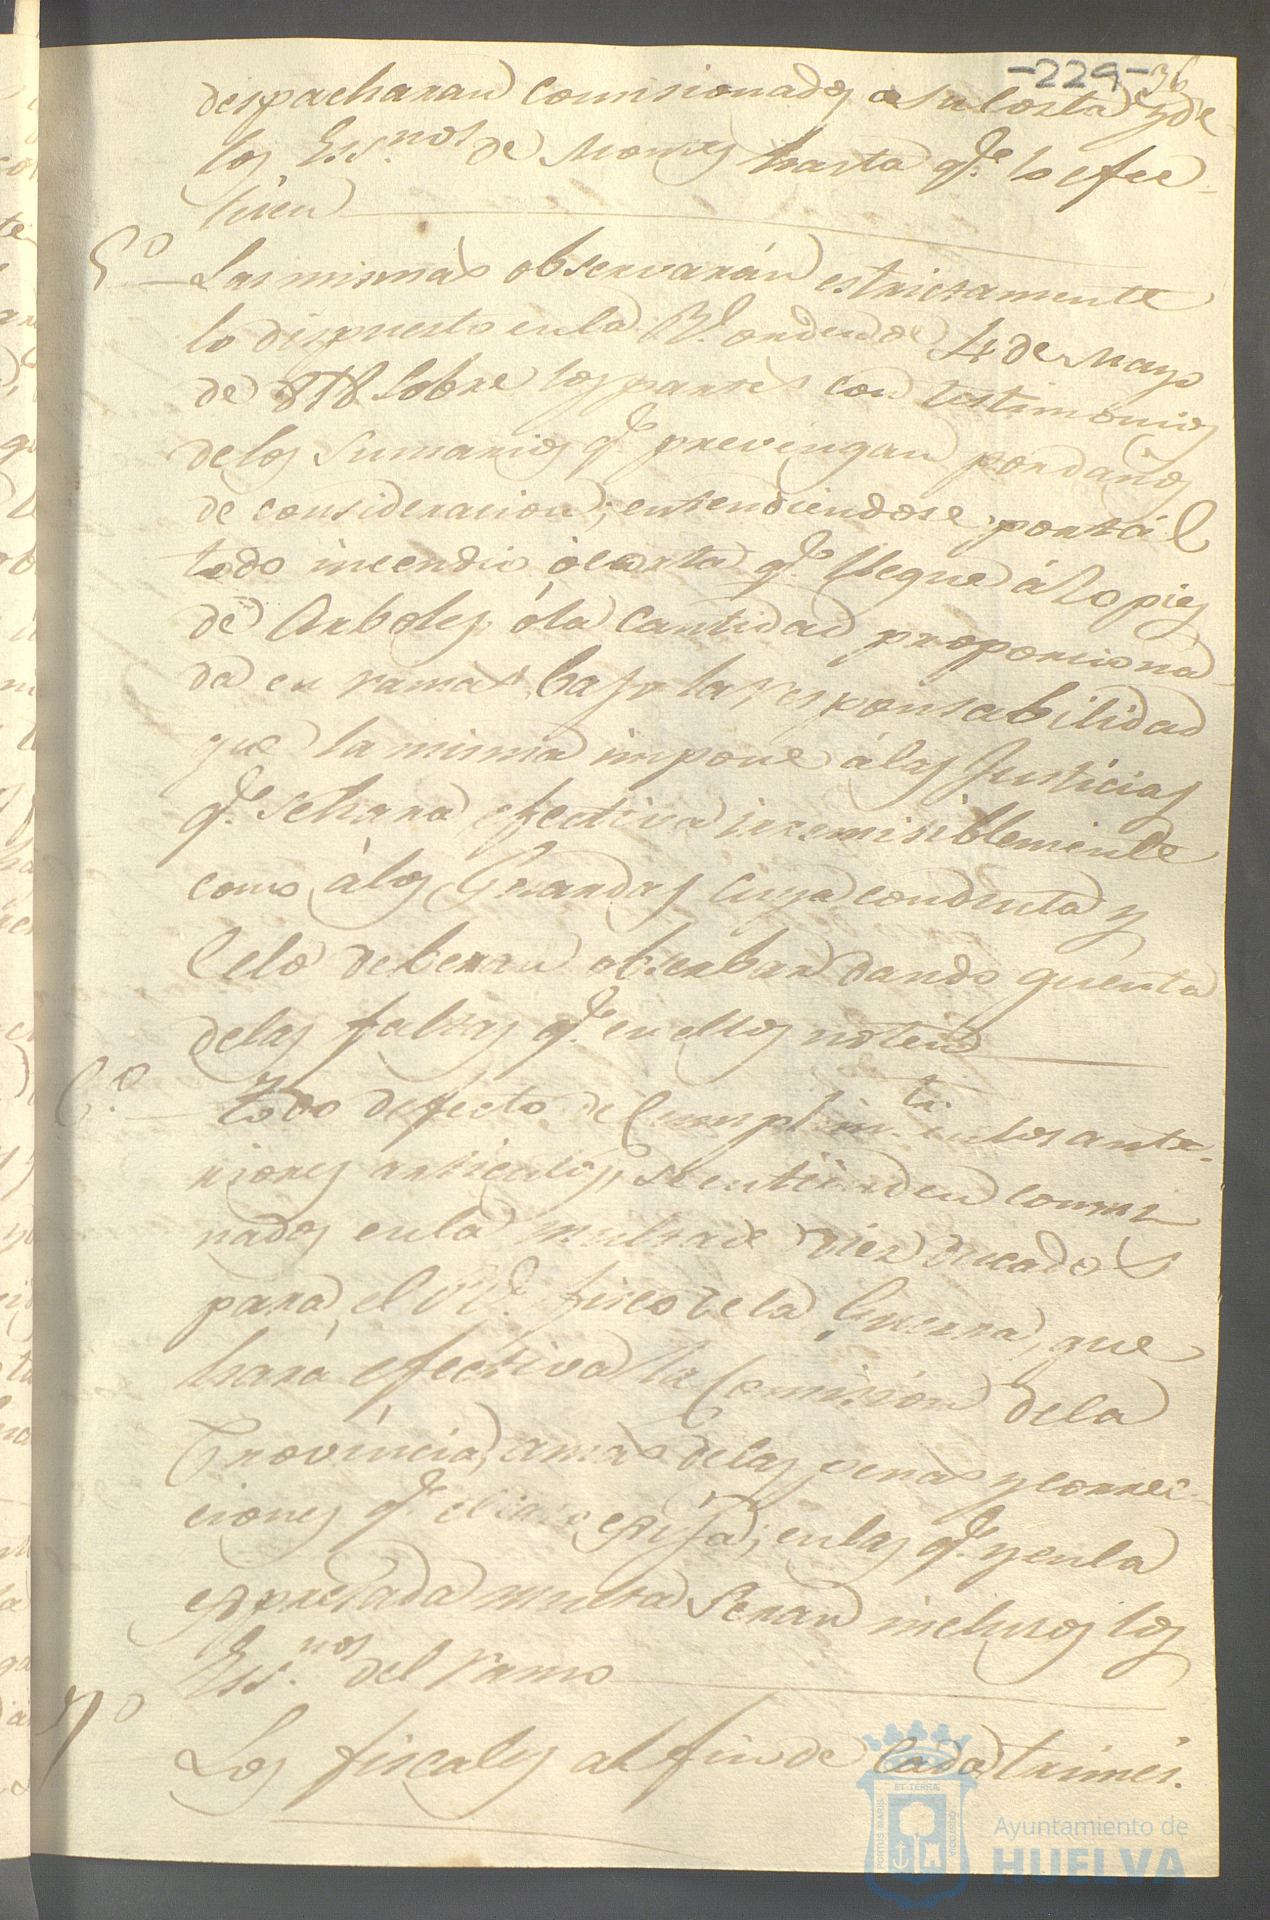 -229- 36
despacharan comisionados a su costa y de
los Ess.nos de Montes hasta q.e lo efec-
tuen
5.o Las mismas observarán estrictamente
lo dispuesto en la R.l orden de 4 de Mayo
de 818 sobre los partes con testimonios
de los sumarios q.e prevengan por daños
de consideracion; entendiendose por tál
todo incendio ó corta q.e llegue á 20 pies
de Arboles, ó la cantidad proporciona-
da en ramas, bajo la responsabilidad
que la misma impone á las Justicias
q.e se hara efectiva irremisiblemente
como á los Guardas cuya conducta y
Celo deberan obserbar dando quenta
de las faltas q.e en ellos noten
6.o Todo defecto de Cumplim.to en los ante-
riores articulos, se entienden conmi
nados en la multa de diez ducados
para el R.l fisco de la Guerra, que
hará efectiva la Comision de la
Provincia, amas de las penas y correc-
ciones q.e el caso exija; en las q.e y en la
expresada multa seran inclusos los
Ess.nos del ramo
7.o Los fiscales al fin de Cada trimes.
PORTUS MARIS ET TERRAE CUSTODIA
Ayuntamiento de
HUELVA